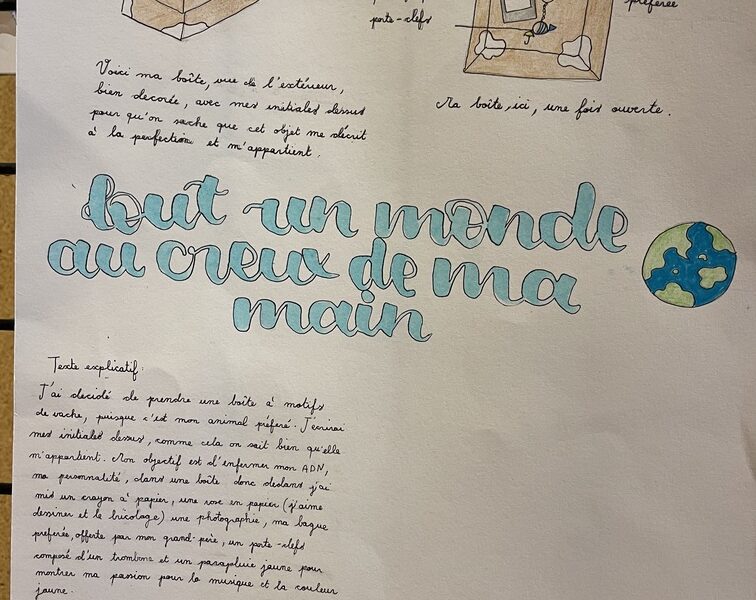 porte-clefs
préférée
Voici ma boîte, vue de l'extérieur,
bien decorée, avec mes initiales dessus
pour qu'on sache que cet objet me décrit
à la perfection et m'appartient.
Ma boîte, ici, une fois ouverte.
tout un monde
au creux de ma
main
Texte explicatif:
J'ai decidé de prendre une boîte à motifs
de vache, puisque c'est mon animal préféré. J'écrirai
mes initiales dessus, comme cela on sait bien qu'elle
m'appartient. Mon objectif est d'enfermer mon ADN,
ma personnalité, dans une boîte donc dedans j'ai
mis un crayon à papier, une rose en papier (j'aime
dessiner et le bricolage) une photographie, ma bague
préférée, offerte par mon grand-père, un porte-clefs
composé d'un trombone et un parapluie jaune pour
montrer ma passion pour la musique et la couleur
jaune.